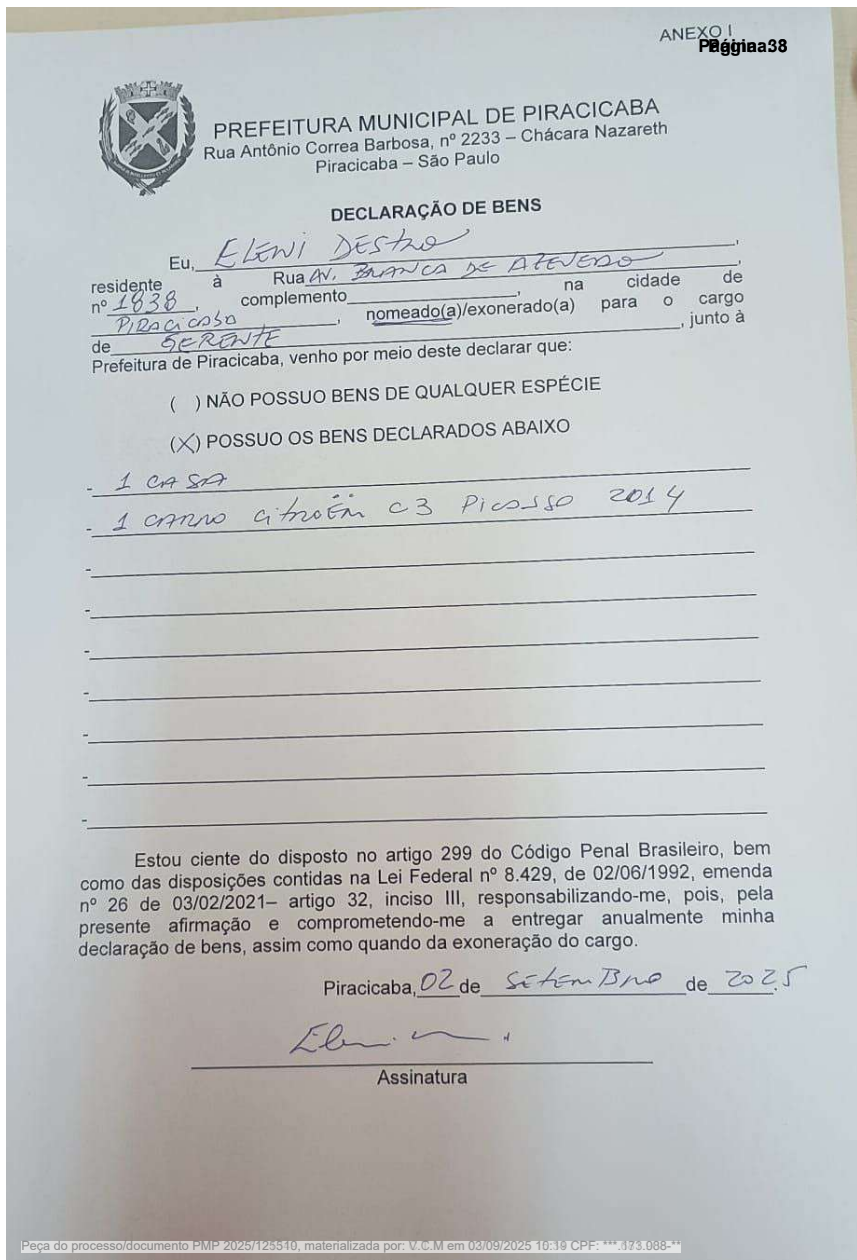 ANEXO I
Página 38
PREFEITURA MUNICIPAL DE PIRACICABA
Rua Antônio Correa Barbosa, nº 2233 – Chácara Nazareth
Piracicaba – São Paulo
DECLARAÇÃO DE BENS
Eu, ELENI DESTRO,
residente à Rua AV. BRANCA DE AZEVEDO,
nº 1838, complemento____________, na cidade de
PIRACICABA, nomeado(a)/exonerado(a) para o cargo
de GERENTE, junto à
Prefeitura de Piracicaba, venho por meio deste declarar que:
( ) NÃO POSSUO BENS DE QUALQUER ESPÉCIE
(X) POSSUO OS BENS DECLARADOS ABAIXO
- 1 CASA
- 1 CARRO CitroËn C3 PicASSO 2014
-
-
-
-
-
-
-
Estou ciente do disposto no artigo 299 do Código Penal Brasileiro, bem
como das disposições contidas na Lei Federal nº 8.429, de 02/06/1992, emenda
nº 26 de 03/02/2021– artigo 32, inciso III, responsabilizando-me, pois, pela
presente afirmação e comprometendo-me a entregar anualmente minha
declaração de bens, assim como quando da exoneração do cargo.
Piracicaba, 02 de SEtEmBRO de 2025
Assinatura
Peça do processo/documento PMP 2025/125510, materializada por: V.C.M em 03/09/2025 10:19 CPF: ***.173.088-**